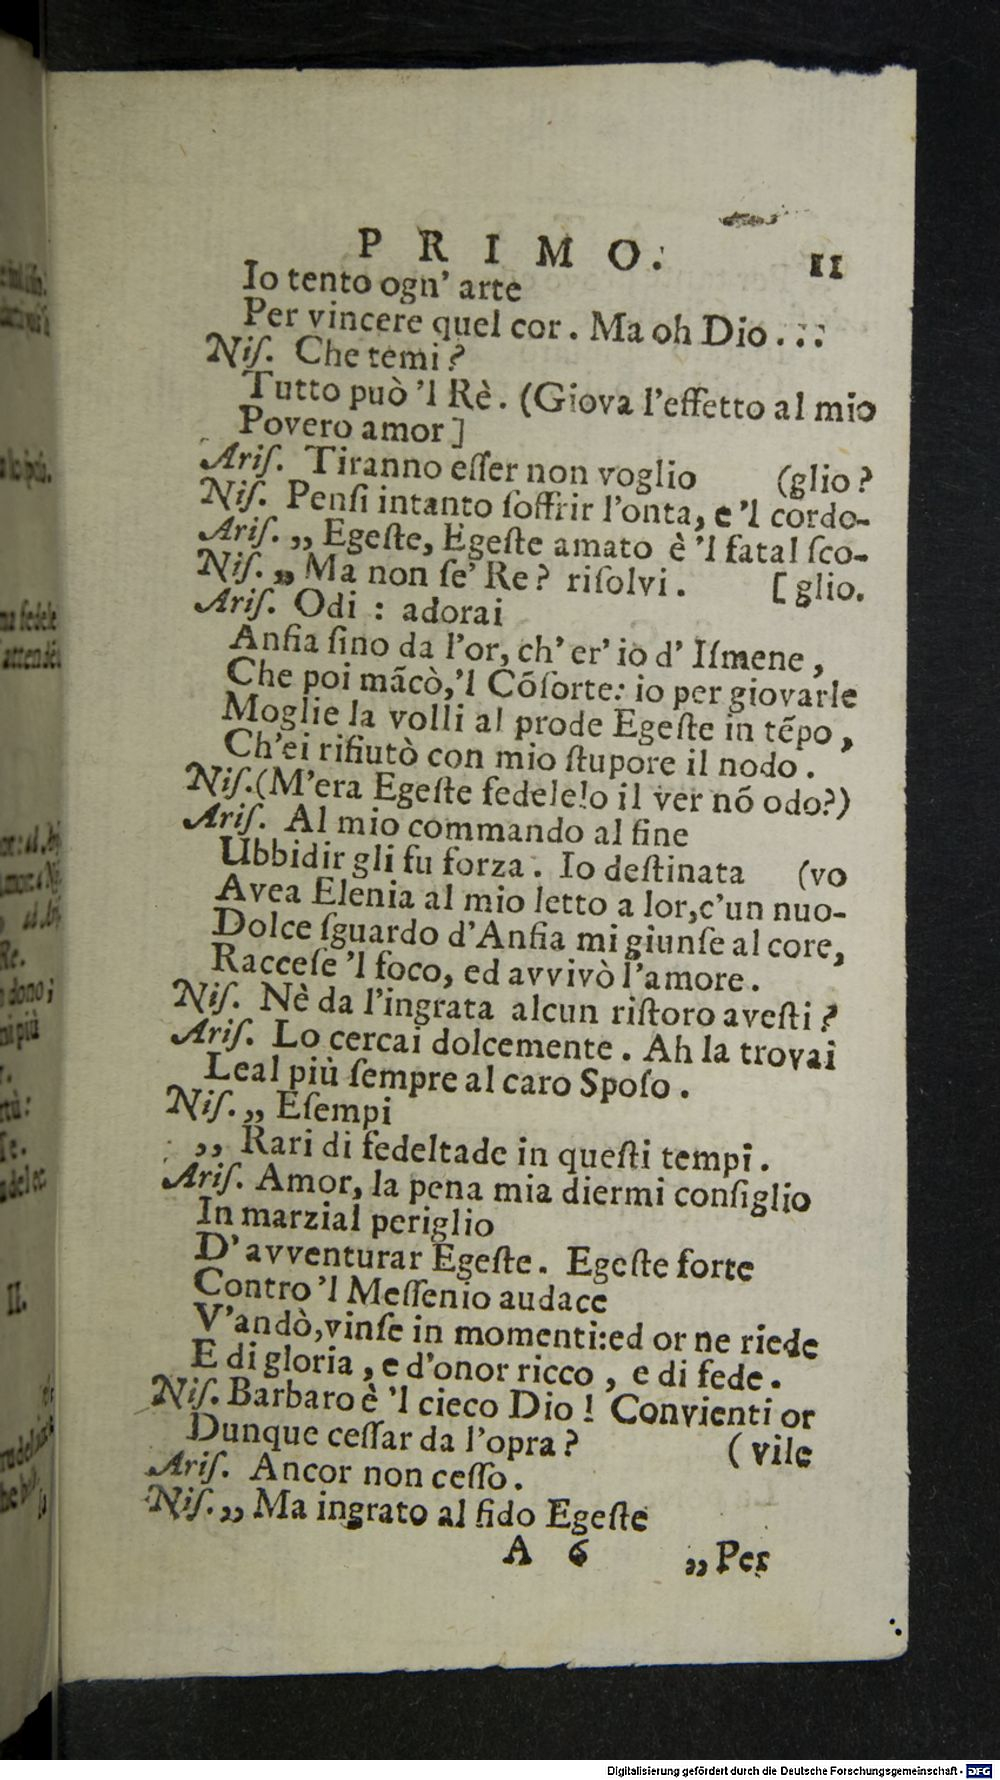 PRIMO. 11
Io tento ogn' arte
Per vincere quel cor. Ma oh Dio...:
Niſ. Che temi?
Tutto può 'l Rè. (Giova l'effetto al mio
Povero amor]
Ariſ. Tiranno eſſer non voglio (glio?
Niſ. Penſi intanto ſoffrir l'onta, e 'l cordo-
Ariſ. „ Egeſte, Egeſte amato è 'l fatal ſco-
Niſ. „ Ma non ſe' Re? riſolvi. [glio.
Ariſ. Odi : adorai
Anſia ſino da l'or, ch' er' io d' Iſmene,
Che poi mãcò,'l Cõſorte: io per giovarle
Moglie la volli al prode Egeſte in tẽpo,
Ch'ei rifiutò con mio ſtupore il nodo.
Niſ.(M'era Egeſte fedele!o il ver nõ odo?)
Ariſ. Al mio commando al fine
Ubbidir gli fu forza. Io deſtinata (vo
Avea Elenia al mio letto a lor,c'un nuo-
Dolce ſguardo d'Anſia mi giunſe al core,
Racceſe 'l foco, ed avvivò l'amore.
Niſ. Nè da l'ingrata alcun riſtoro aveſti?
Ariſ. Lo cercai dolcemente. Ah la trovai
Leal più ſempre al caro Spoſo.
Niſ. „ Eſempi
„ Rari di fedeltade in queſti tempi.
Ariſ. Amor, la pena mia diermi conſiglio
In marzial periglio
D' avventurar Egeſte. Egeſte forte
Contro 'l Meſſenio audace
V'andò,vinſe in momenti:ed or ne riede
E di gloria, e d'onor ricco, e di fede.
Niſ. Barbaro è 'l cieco Dio! Convienti or
Dunque ceſſar da l'opra? (vile
Ariſ. Ancor non ceſſo.
Niſ. „ Ma ingrato al fido Egeſte
A 6 „Per
Digitalisierung gefördert durch die Deutsche Forschungsgemeinschaft - DFG